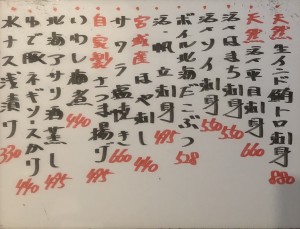 天然生インド鮪トロ刺身 880
天然活〆平目刺身 660
活〆はまち刺身 550
活〆ソイ刺身 550
ボイル北海だこぶつ 528
活・帆立刺身 495
宮城産ほや刺し 440
サワラ塩焼き 660
自家製さつま揚げ 495
いわし生姜煮 440
北海アサリ酒蒸し 495
ゆで豚ネギソースがけ 440
水ナス浅漬け 330